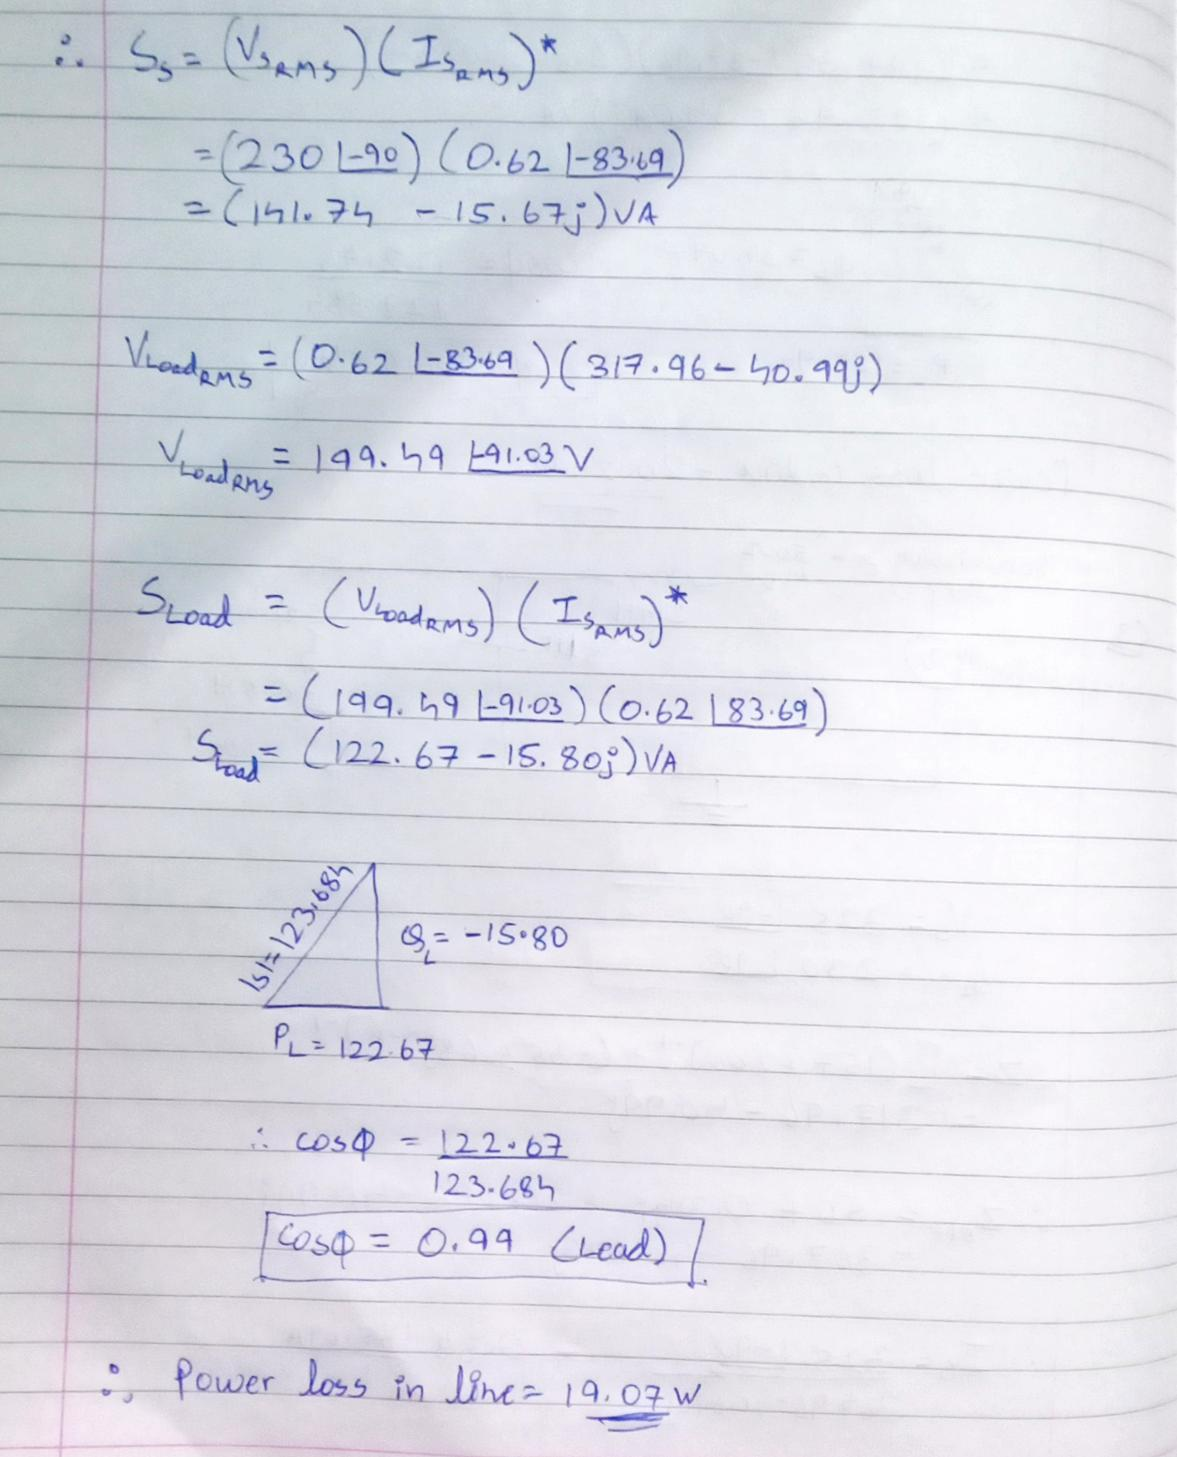 ∴ S_S = (V_SRMS) (I_SRMS)*
= (230 ∠-90) (0.62 ∠-83.69)
= (141.74 - 15.67j) VA
V_LoadRMS = (0.62 ∠-83.69) (317.96 - 40.99j)
V_LoadRMS = 199.49 ∠-91.03 V
S_Load = (V_LoadRMS) (I_SRMS)*
= (199.49 ∠-91.03) (0.62 ∠83.69)
S_Load = (122.67 - 15.80j) VA
|S| = 123.684
Q_L = -15.80
P_L = 122.67
∴ cosφ = 122.67
123.684
cosφ = 0.99 (Lead)
∴, Power loss in line = 19.07 W